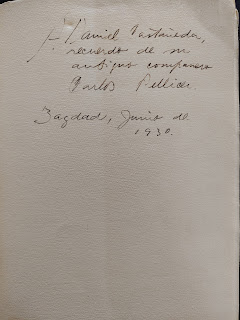 A Daniel Castañeda,
recuerdo de su
antiguo compañero
Carlos Pellicer
Bagdad, Junio de
1930.